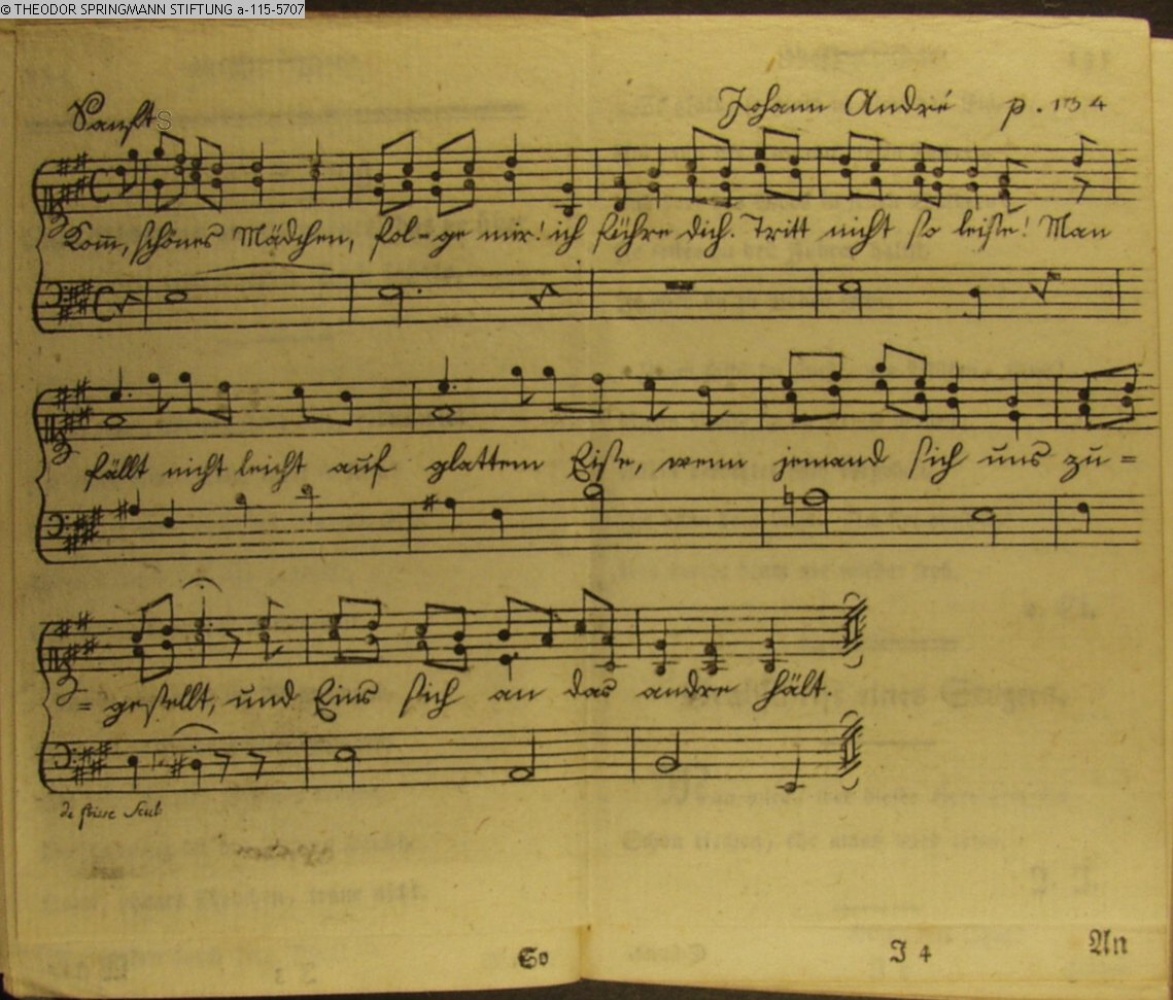 © THEODOR SPRINGMANN STIFTUNG a-115-5707
Sanft
Johann André p. 134
Kom̅, schönes Mädchen, fol-ge mir! ich führe dich. Tritt nicht so leise! Man
fällt nicht leicht auf glattem Eise, wenn jemand sich uns zu=
=gesellt, und Eins sich an das andre hält.
de Fleise Scul
So
I 4
An